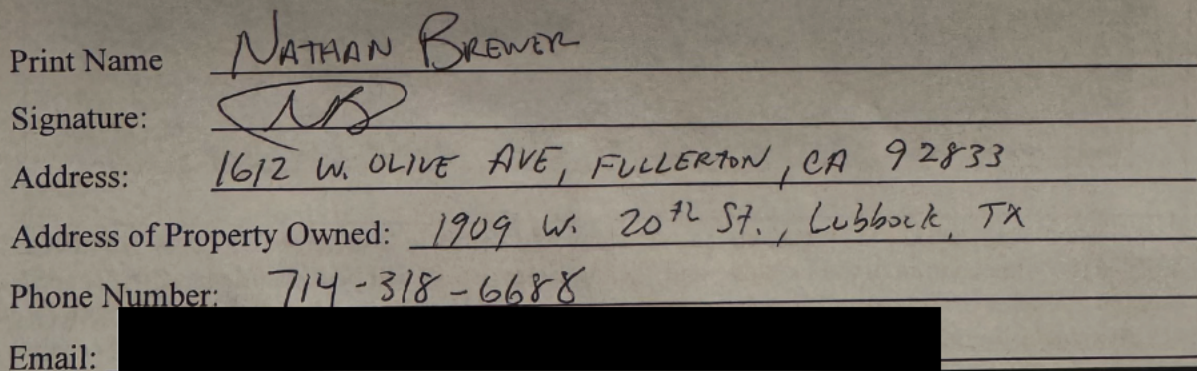 Print Name NATHAN BREWER
Signature: NB
Address: 1612 W. OLIVE AVE, FULLERTON, CA 92833
Address of Property Owned: 1909 W. 20th St., Lubbock, TX
Phone Number: 714-318-6688
Email: